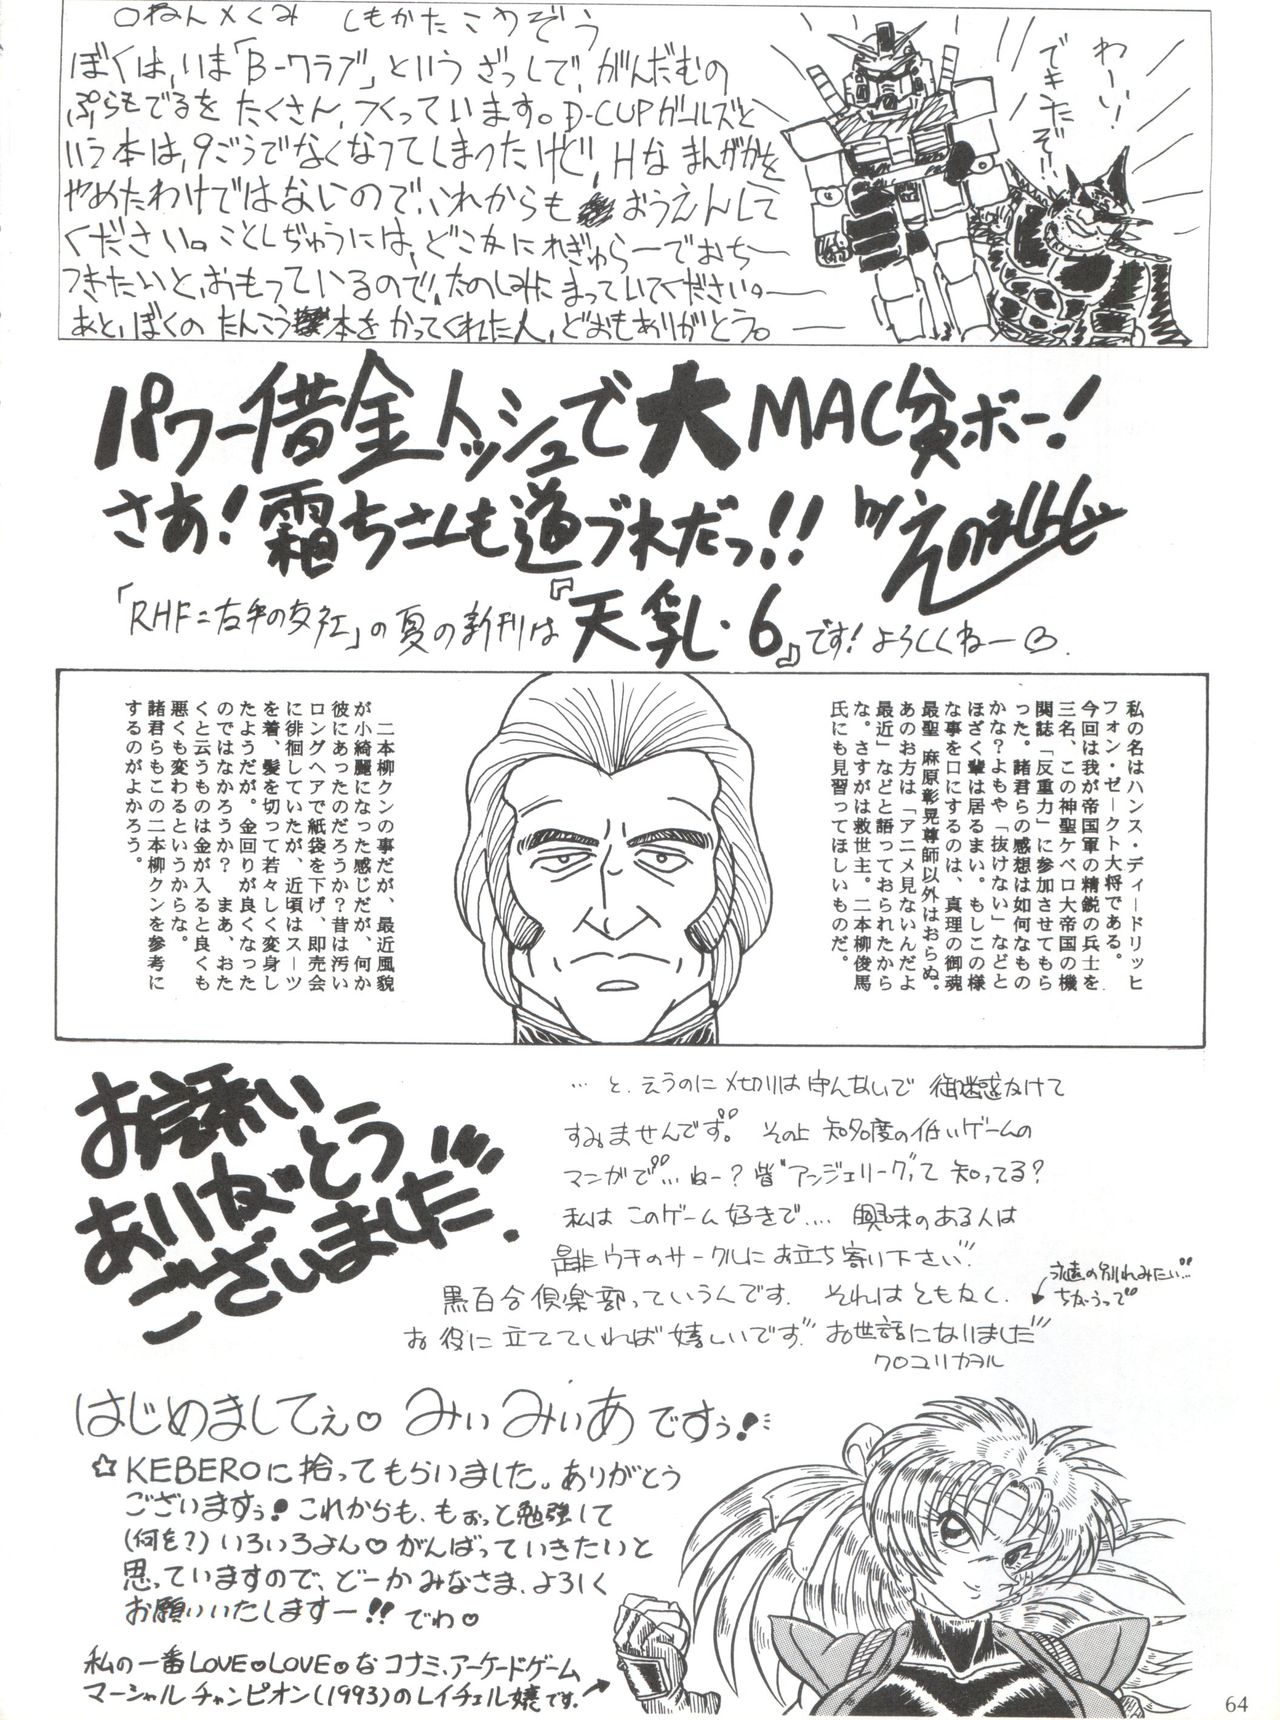 ○ねん×くみ　しもかたこうぞう
ぼくは、いま「B-クラブ」というざっしで、がんだむの
ぷらもでるをたくさん、つくっています。D-CUPガールズと
いう本は、9ごうでなくなってしまったけど、Hなまんがかを
やめたわけではないので、これからもおうえんして
ください。ことしじゅうには、どこかにれぎゅらーでおち
つきたいと、おもっているので、たのしみにまっていてください。
あと、ぼくのたんこう本をかってくれた人、どおもありがとう。
わーい!
できたぞ
パワー借金トッシュで大MAC貧ボー!
さあ!霜ちさんも道ブれだっ!!
「RHF=右手の友社」の夏の新刊は『天乳・6』です!よろしくねー
私の名はハンス・ディードリッヒ
フォン・ゼークト大将である。
今回は我が帝国軍の精鋭の兵士を
三名、この神聖ケベロ大帝国の機
関誌「反重力」に参加させてもら
った。諸君らの感想は如何なもの
かな?よもや「抜けない」などと
ほざく輩は居るまい。もしこの様
な事を口にするのは、真理の御魂
最聖 麻原彰晃尊師以外はおらぬ。
あのお方は「アニメ見ないんだよ
最近」などと語っておられたから
な。さすがは救世主。二本柳俊馬
氏にも見習ってほしいものだ。
二本柳クンの事だが、最近風貌
が小綺麗になった感じだが、何か
彼にあったのだろうか?昔は汚い
ロングヘアで紙袋を下げ、即売会
に徘徊していたが、近頃はスーツ
を着、髪を切って若々しく変身し
たようだが。金回りが良くなった
のではなかろうか?まあ、おた
くと云うものは金が入ると良くも
悪くも変わるというからな。
諸君らもこの二本柳クンを参考に
するのがよかろう。
お誘い
ありがとう
ございました.
…と、えうのに〆切りは守んないで 御迷惑かけて
すみませんです。その上 知名度の低いゲームの
マンガで…ねー?皆"アンジェリーク"って知ってる?
私はこのゲーム好きで…. 興味のある人は
是非ウチのサークルにお立ち寄り下さい
黒百合倶楽部っていうんです. それはともかく.
永遠の別れみたい…
ちがうって
お役に立てていれば嬉しいです お世話になりました
クロユリカヲル
はじめましてぇ♡ みぃみぃあですぅ!
☆KEBEROに拾ってもらいました。ありがとう
ございますぅ!これからも、もぉっと勉強して
(何を?)いろいろよん♡がんばっていきたいと
思っていますので、どーかみなさま、よろしく
お願いいたしますー!! でわ♡
私の一番LOVE♥LOVE♥なコナミ、アーケードゲーム
マーシャルチャンピオン(1993)のレイチェル嬢です。
64